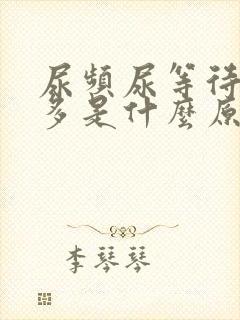 尿頻尿等待
多是什麼原
李琴琴